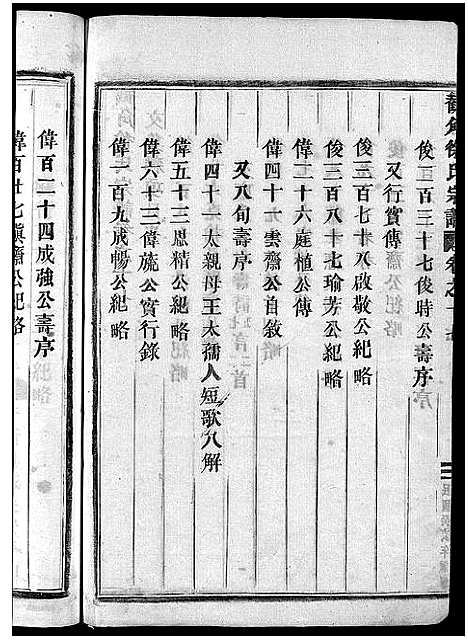 徐氏宗譜
俊二百三十七俊時公壽序
又行實傳
俊三百七十八啟敬公紀略
俊三百八十七瑜芳公紀略
偉二十六庭植公傳
偉四十一雲齋公自敘
又八旬壽序
偉四十一太親母王太孺人短歌八解
偉五十三恩精公紀略
偉六十三偉旒公實行錄
偉一百九成暢公紀略
偉百二十四成強公壽序
偉百廿七稹齋公紀略